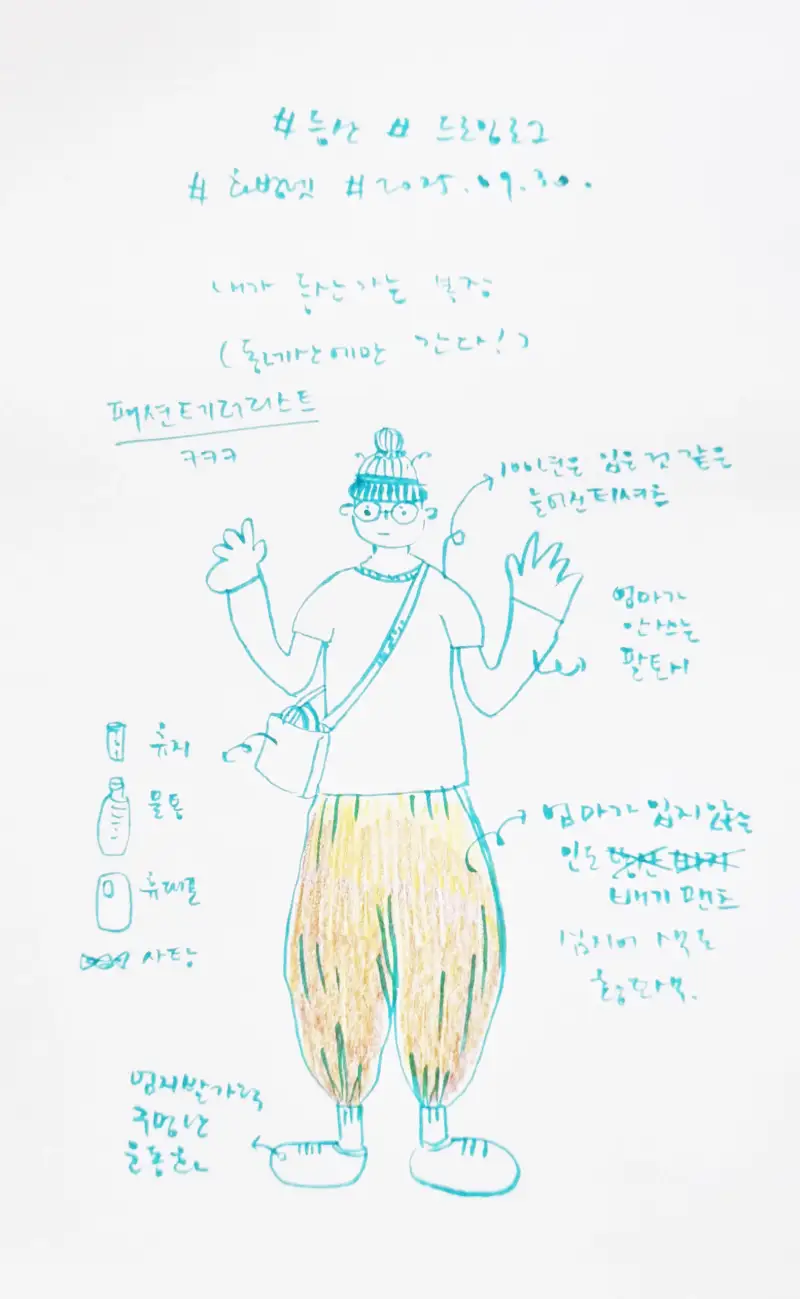 #등산 # 드로잉로그
#화방넷 #2025.09.30.
내가 등산가는 복장
(동네산에만 간다!)
패션테러리스트
ㅋㅋㅋ
100년은 입은 것 같은
늘어진 티셔츠
엄마가
안 쓰는
팔토시
휴지
물통
휴대폰
사탕
엄마가 입지 않는
인도
배기 팬츠
심지어 색도
황토색.
엄지발가락
구멍난
운동화